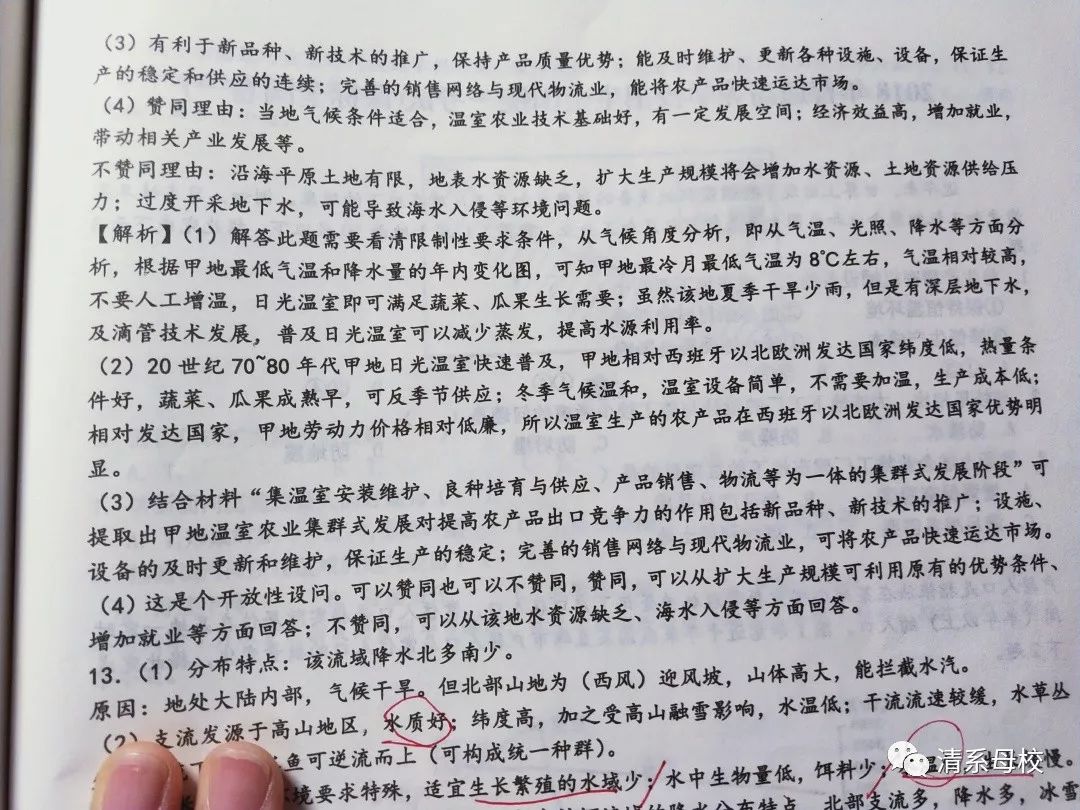 （3）有利于新品种、新技术的推广，保持产品质量优势；能及时维护、更新各种设施、设备，保证生
产的稳定和供应的连续；完善的销售网络与现代物流业，能将农产品快速运达市场。
（4）赞同理由：当地气候条件适合，温室农业技术基础好，有一定发展空间；经济效益高，增加就业，
带动相关产业发展等。
不赞同理由：沿海平原土地有限，地表水资源缺乏，扩大生产规模将会增加水资源、土地资源供给压
力；过度开采地下水，可能导致海水入侵等环境问题。
【解析】（1）解答此题需要看清限制性要求条件，从气候角度分析，即从气温、光照、降水等方面分
析，根据甲地最低气温和降水量的年内变化图，可知甲地最冷月最低气温为8℃左右，气温相对较高，
不要人工增温，日光温室即可满足蔬菜、瓜果生长需要；虽然该地夏季干旱少雨，但是有深层地下水，
及滴管技术发展，普及日光温室可以减少蒸发，提高水源利用率。
（2）20世纪70~80年代甲地日光温室快速普及，甲地相对西班牙以北欧洲发达国家纬度低，热量条
件好，蔬菜、瓜果成熟早，可反季节供应；冬季气候温和，温室设备简单，不需要加温，生产成本低；
相对发达国家，甲地劳动力价格相对低廉，所以温室生产的农产品在西班牙以北欧洲发达国家优势明
显。
（3）结合材料“集温室安装维护、良种培育与供应、产品销售、物流等为一体的集群式发展阶段”可
提取出甲地温室农业集群式发展对提高农产品出口竞争力的作用包括新品种、新技术的推广；设施、
设备的及时更新和维护，保证生产的稳定；完善的销售网络与现代物流业，可将农产品快速运达市场。
（4）这是个开放性设问。可以赞同也可以不赞同，赞同，可以从扩大生产规模可利用原有的优势条件、
增加就业等方面回答；不赞同，可以从该地水资源缺乏、海水入侵等方面回答。
13.（1）分布特点：该流域降水北多南少。
原因：地处大陆内部，气候干旱。但北部山地为（西风）迎风坡，山体高大，能拦截水汽。
（2）支流发源于高山地区，水质好；纬度高，加之受高山融雪影响，水温低；干流流速较缓，水草丛
鱼可逆流而上（可构成统一种群）。
环境要求特殊，适宜生长繁殖的水域少；水中生物量低，饵料少；慢。
降水分布特点，北部支流多，降水多，冰雪
清系母校